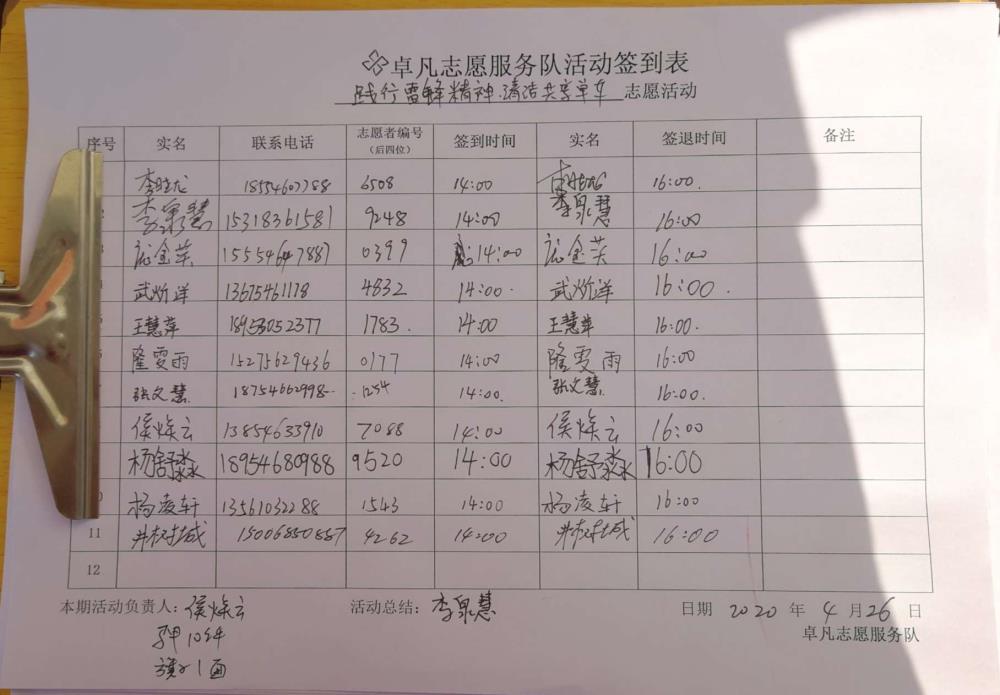 卓凡志愿服务队活动签到表
践行雷锋精神.清洁共享单车 志愿活动
序号 实名 联系电话 志愿者编号（后四位） 签到时间 实名 签退时间 备注
李晓龙 18554607788 6508 14:00 16:00.
李泉慧 15318361581 9248 14:00 李泉慧 16:00
金英 15554647887 0399 14:00 金英 16:00
武炘洋 13675461118 4832 14:00. 武炘洋 16:00.
王慧萍 18953052377 1783. 14:00 王慧萍 16:00.
隆雯雨 15275629436 0177 14:00 隆雯雨 16:00
张文慧 18754662998 1254 14:00. 张文慧 16:00.
侯焕云 13854633910 7088 14:00 侯焕云 16:00
杨舒淼 18954680988 9520 14:00 杨舒淼 16:00
10 杨凌轩 13561032288 1543 14:00 杨凌轩 16:00
11 15006850887 4262 14:00 16:00
12
本期活动负责人：侯焕云 活动总结：李泉慧 日期 2020 年 4 月 26 日
卓凡志愿服务队
10件
旗 1面